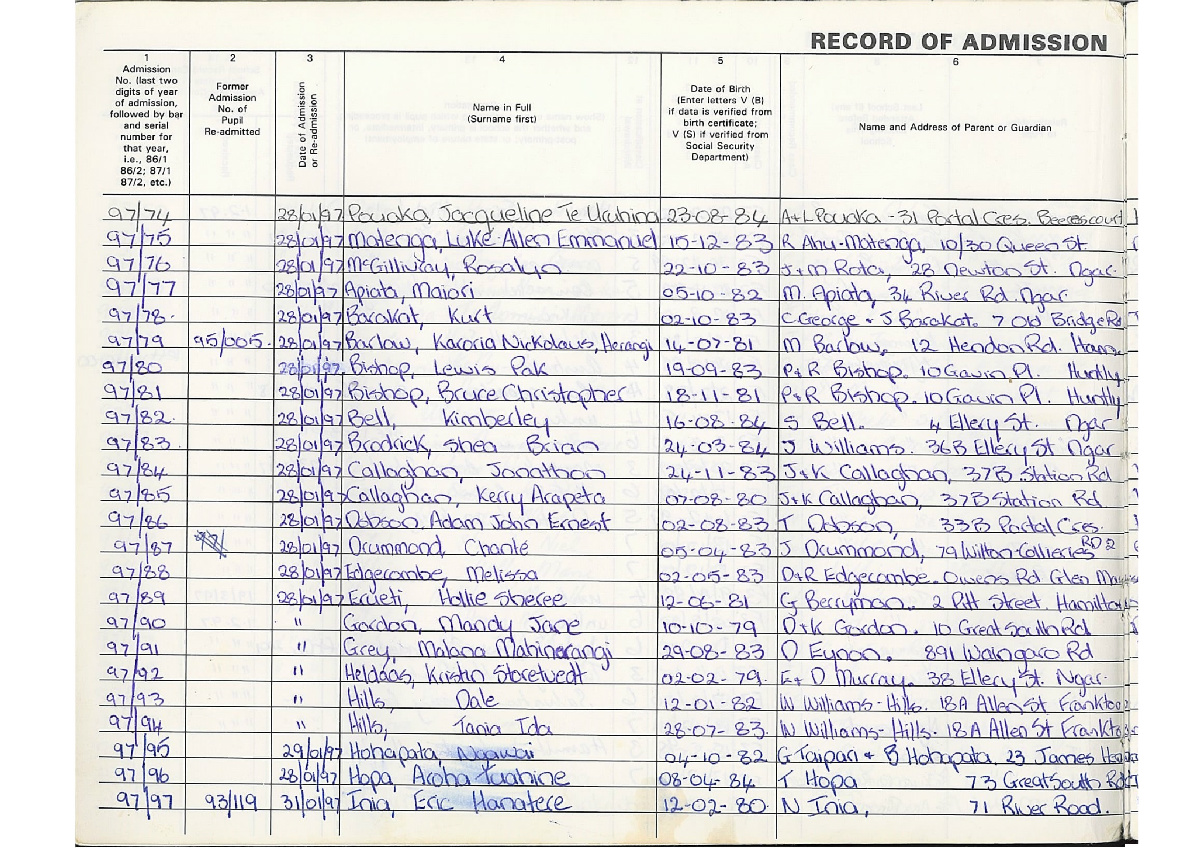 RECORD OF ADMISSION
1 2 3 4 5 6
Admission No. (last two digits of year of admission, followed by bar and serial number for that year, i.e., 86/1 86/2; 87/1 87/2, etc.)
Former Admission No. of Pupil Re-admitted
Date of Admission or Re-admission
Name in Full (Surname first)
Date of Birth (Enter letters V (B) if data is verified from birth certificate; V (S) if verified from Social Security Department)
Name and Address of Parent or Guardian
97/74 28/01/97 Pouaka, Jacqueline Te Uruhina 23-08-84 A+L Pouaka - 31 Portal Cres. Beerescourt
97/75 28/01/97 Matenga, Luke Allen Emmanuel 15-12-83 R Ahu-Matenga, 10/30 Queen St.
97/76 28/01/97 McGillivray, Rosalyn 22-10-83 J+M Rota, 28 Newton St. Ngar.
97/77 28/01/97 Apiata, Maiori 05-10-82 M. Apiata, 34 River Rd. Ngar.
97/78. 28/01/97 Barakat, Kurt 02-10-83 C George + J Barakat. 7 Old Bridge Rd
97/79 95/005. 28/01/97 Barlow, Karoria Nickolaus, Herangi 14-07-81 M Barlow, 12 Hendon Rd.
97/80 28/01/97 Bishop, Lewis Pak 19-09-83 P+R Bishop. 10 Gavin Pl. Huntly
97/81 28/01/97 Bishop, Bruce Christopher 18-11-81 P+R Bishop. 10 Gavin Pl. Huntly
97/82. 28/01/97 Bell, Kimberley 16-08-84 S Bell. 4 Ellery St. Ngar
97/83. 28/01/97 Brodrick, Shea Brian 24-03-84 J Williams. 36B Ellery St Ngar
97/84 28/01/97 Callaghan, Jonathon 24-11-83 J+K Callaghan, 37B Station Rd
97/85 28/01/97 Callaghan, Kerry Arapeta 07-08-80 J+K Callaghan, 37B Station Rd.
97/86 28/01/97 Dobson, Adam John Ernest 02-08-83 T Dobson, 33B Portal Cres.
97/87 28/01/97 Drummond, Chanté 05-04-83 J Drummond, 79 Wilton-Collieries RD 2
97/88 28/01/97 Edgecombe, Melissa 02-05-83 D+R Edgecombe. Owens Rd Glen
97/89 28/01/97 Erueti, Hollie Sheree 12-06-81 G Berryman. 2 Pitt Street. Hamilton
97/90 " Gordon, Mandy Jane 10-10-79 D+K Gordon. 10 Great South Rd
97/91 " Grey, Malana Mahinarangi 29-08-83 D Eynon. 891 Waingaro Rd
97/92 " Helddas, Kristin Storetvedt 02-02-79. E+D Murray. 38 Ellery St. Ngar.
97/93 " Hills, Dale 12-01-82 W Williams-Hills. 18A Allen St Frankton
97/94 " Hills, Tania Ida 28-07-83. W Williams-Hills. 18A Allen St Frankton
97/95 29/01/97 Hohapata, Ngawai 04-10-82 G Taipari + B Hohapata, 23 James
97/96 28/01/97 Hopa, Aroha Tuahine 08-04-84 T Hopa 73 Great South Rd
97/97 93/119 31/01/97 Inia, Eric Hanatere 12-02-80. N Inia, 71 River Road.